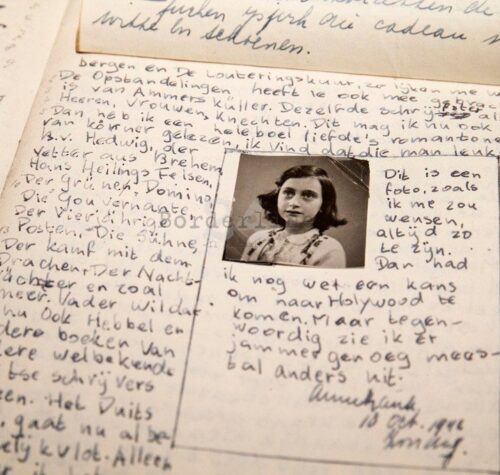 witte en schoenen.
bergen en De Louteringskuur, zo lijken me w
De Opstandelingen, heeft ie ook mee
is van Ammers Küller. Dezelfde schrijfster al
Heeren, Vrouwen, Knechten. Dit mag ik nu ook
Dan heb ik een heleboel liefde's romantone
van körner gelezen, ik vind dat die man leuk
B.v. Hedwig, der
vetter aus Brehem,
Hans Heilings Felsen,
Der Grünen Domino,
Die Gouvernante,
Der Vierjährige
Posten, Die Sühne,
Der Kampf mit dem
Drachen, Der Nacht-
wächter en zoal
meer. Vader wil dat
nu ook Hebbel en
dere boeken van
ere welbekende
tse schrijvers
zen. Het Duits
gaat nu al be
lijk vlot. Alleen
Dit is een
foto, zoals
ik me zou
wensen,
altijd zo
te zijn.
Dan had
ik nog wel een kans
om naar Holywood te
komen. Maar tegen-
woordig zie ik er
jammer genoeg mees-
tal anders uit.
Annefrank.
10 Oct. 1942
Zondag.